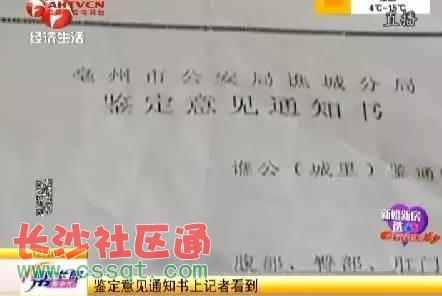 AHTVCN
经济生活
4℃~15℃
直播
亳州市公安局谯城分局
鉴定意见通知书
谯公（城里）鉴通
新婚新房
选
长沙社区通
www.cssqt.com
腹部、臀部、肛门
鉴定意见通知书上记者看到